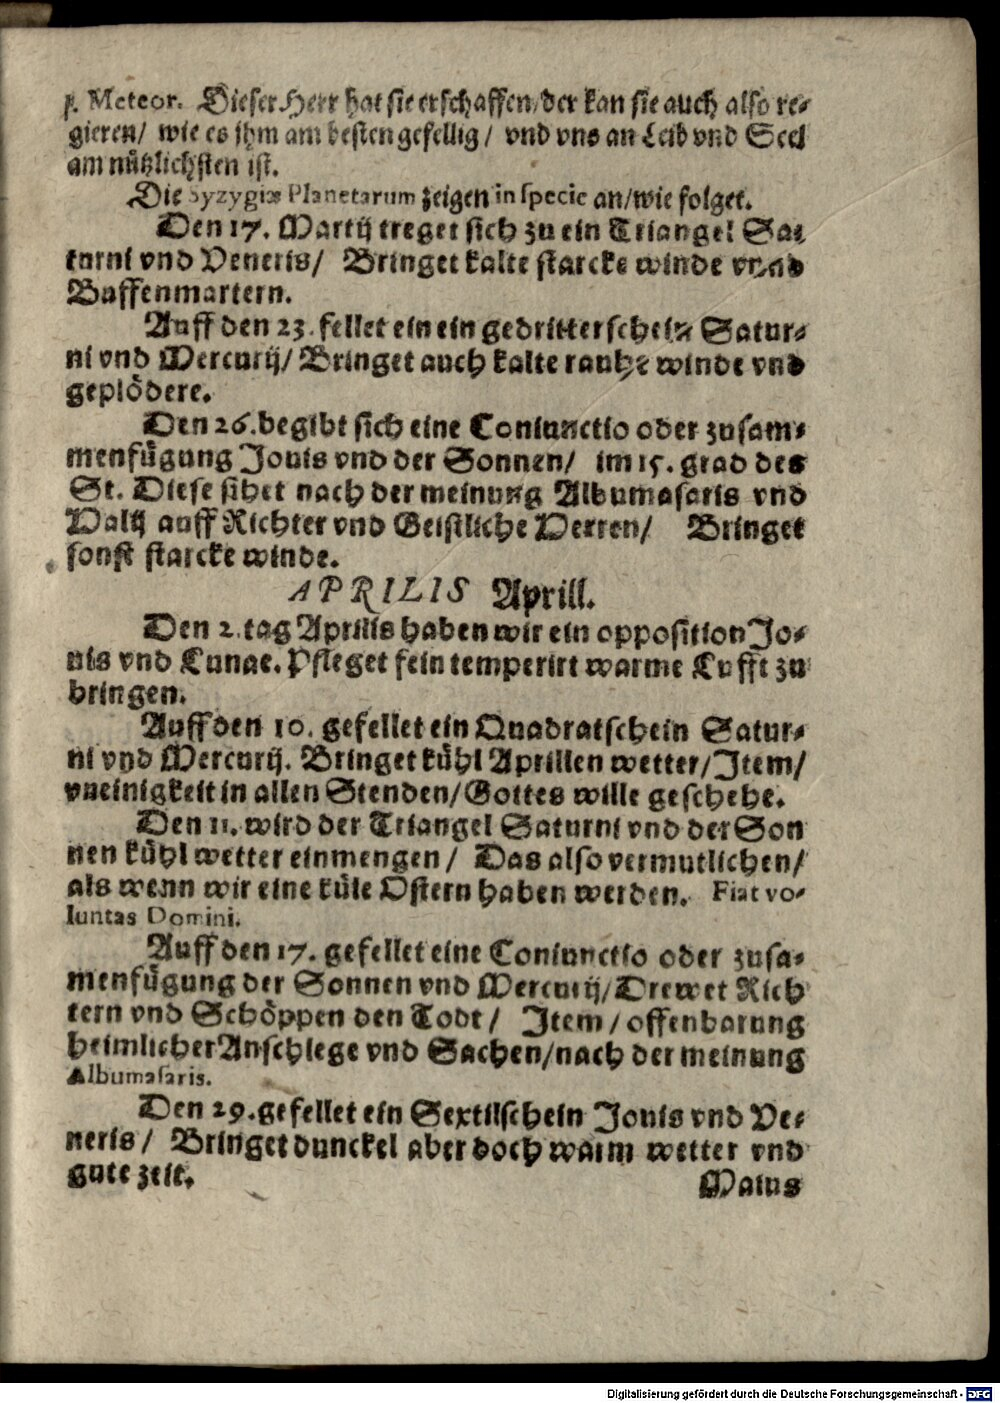 p. Meteor. Dieser Herr hat sie erschaffen/der kan sie auch also re-
gieren/ wie es jhm am besten gefellig/ vnd vns an Leib vnd Seel
am nützlichsten ist.
Die Syzygiæ Planetarum zeigen in specie an/wie folget.
Den 17. Martij treget sich zu ein Triangel Sat
turni vnd Veneris/ Bringet kalte starcke winde vnnd
Baffenmartern.
Auff den 23. fellet ein ein gedritterschein Satur-
ni vnd Mercurij/ Bringet auch kalte rauhe winde vnd
geplödere.
Den 26. begibt sich eine Coniunctio oder zusam-
menfügung Jouis vnd der Sonnen/ im 15. grad des
St. Diese sihet nach der meinung Albumasaris vnd
Halij auff Richter vnd Geistliche Herren/ Bringet
sonst starcke winde.
APRILIS Aprill.
Den 2. tag Aprilis haben wir ein opposition Jo-
uis vnd Lunae. Pfleget fein temperirt warme Lufft zu
bringen.
Auff den 10. gefellet ein Quadratschein Satur-
ni vnd Mercurij. Bringet kühl Aprillen wetter/Jtem/
vneinigkeit in allen Stenden/Gottes wille geschehe.
Den 11. wird der Triangel Saturni vnd der Son
nen kühl wetter einmengen/ Das also vermutlichen/
als wenn wir eine küle Ostern haben werden. Fiat vo-
luntas Domini.
Auff den 17. gefellet eine Coniunctio oder zusa-
menfügung der Sonnen vnd Mercurij/Drewet Rich
tern vnd Schöppen den Todt/ Jtem/offenbarung
heimlicher Anschlege vnd Sachen/nach der meinung
Albumasaris.
Den 29. gefellet ein Sextilschein Jouis vnd Ve-
neris/ Bringet dunckel aber doch warm wetter vnd
gute zeit.
Maius
Digitalisierung gefördert durch die Deutsche Forschungsgemeinschaft - DFG